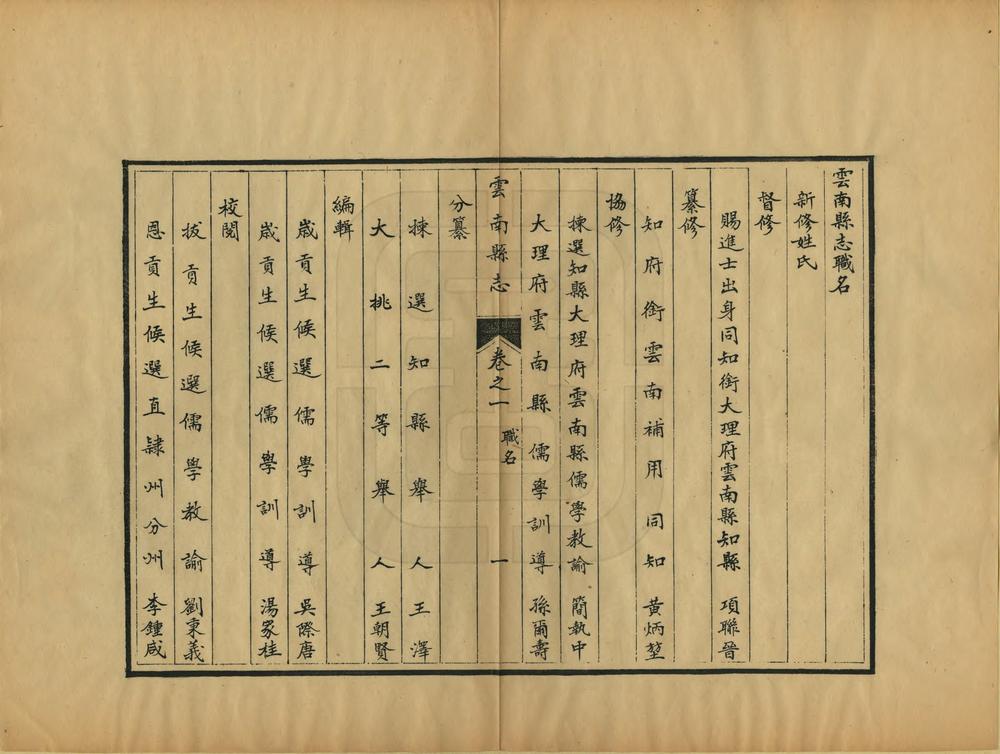 雲南縣志職名
新修姓氏
督修
賜進士出身同知銜大理府雲南縣知縣 項聯晉
纂修
知府銜雲南補用同知 黃炳堃
協修
揀選知縣大理府雲南縣儒學教諭 簡執中
大理府雲南縣儒學訓導 孫爾壽
雲南縣志 卷之一 職名 一
分纂
揀選知縣舉人 王澤
大挑二等舉人 王朝賢
編輯
歲貢生候選儒學訓導 吳際唐
歲貢生候選儒學訓導 湯家桂
校閱
拔貢生候選儒學教諭 劉秉義
恩貢生候選直隸州分州 李鍾咸